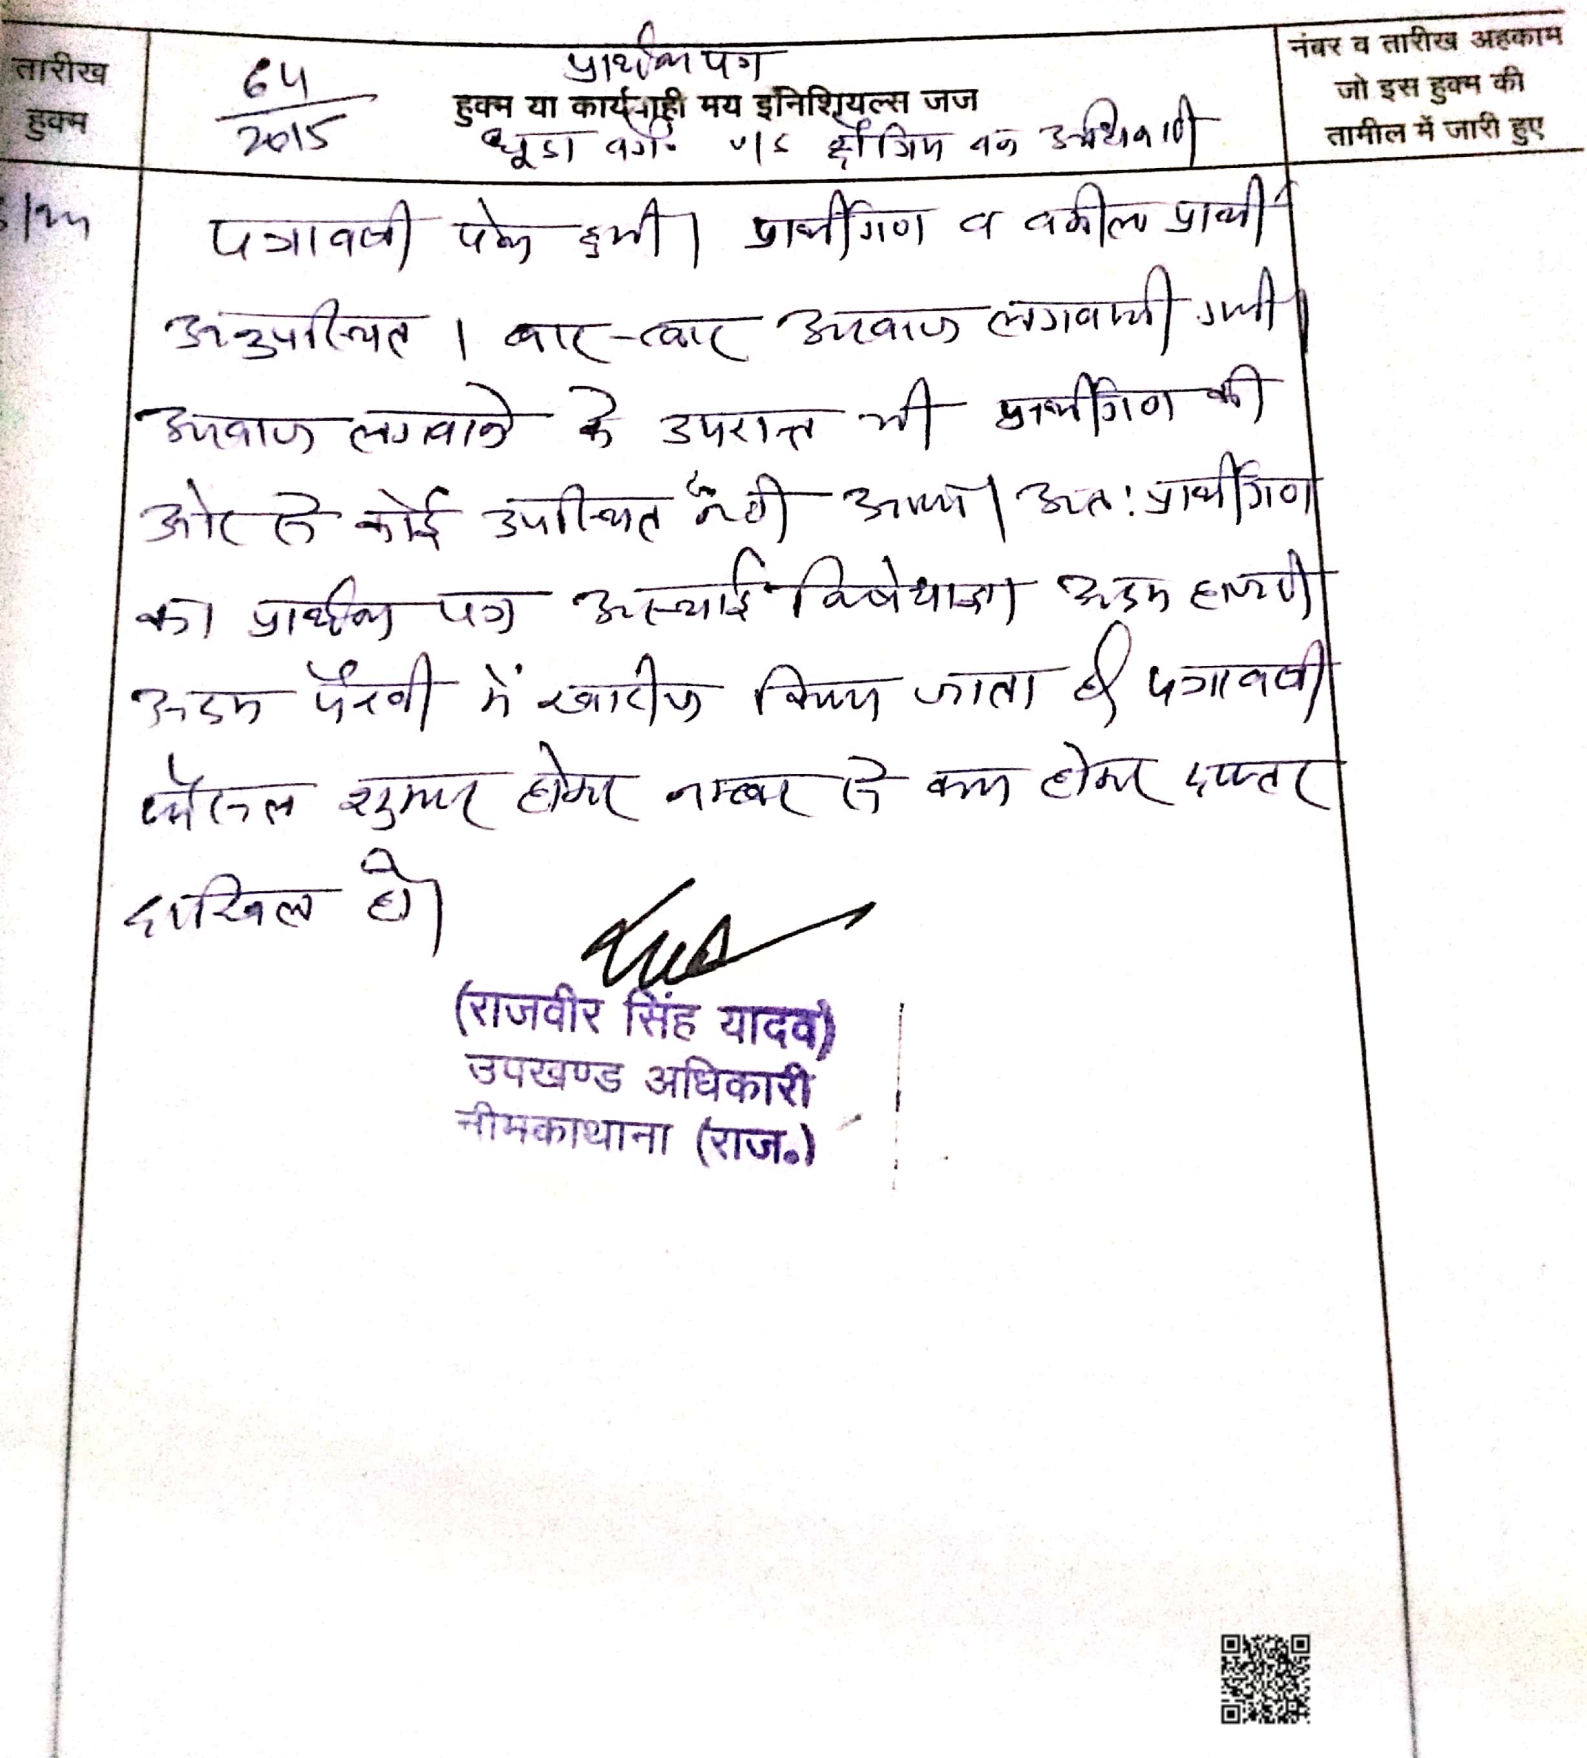 प्रार्थना पत्र
तारीख
हुक्म
64
2015
हुक्म या कार्यवाही मय इनिशियल्स जज
धूडा वगै. v/s क्षेत्रिय वन अधिकारी
नंबर व तारीख अहकाम
जो इस हुक्म की
तामील में जारी हुए
पत्रावली पेश हुयी। प्रार्थीगण व वकील प्रार्थी
अनुपस्थित। बार-बार आवाज लगवायी गयी।
आवाज लगवाने के उपरान्त भी प्रार्थीगण की
ओर से कोई उपस्थित नहीं आया। अत: प्रार्थीगण
का प्रार्थना पत्र अस्थाई निषेधाज्ञा अदम हाजरी
अदम पैरवी में खारीज किया जाता है। पत्रावली
फैसल शुमार होकर नम्बर से कम होकर दफ्तर
दाखिल हो।
(राजवीर सिंह यादव)
उपखण्ड अधिकारी
नीमकाथाना (राज.)